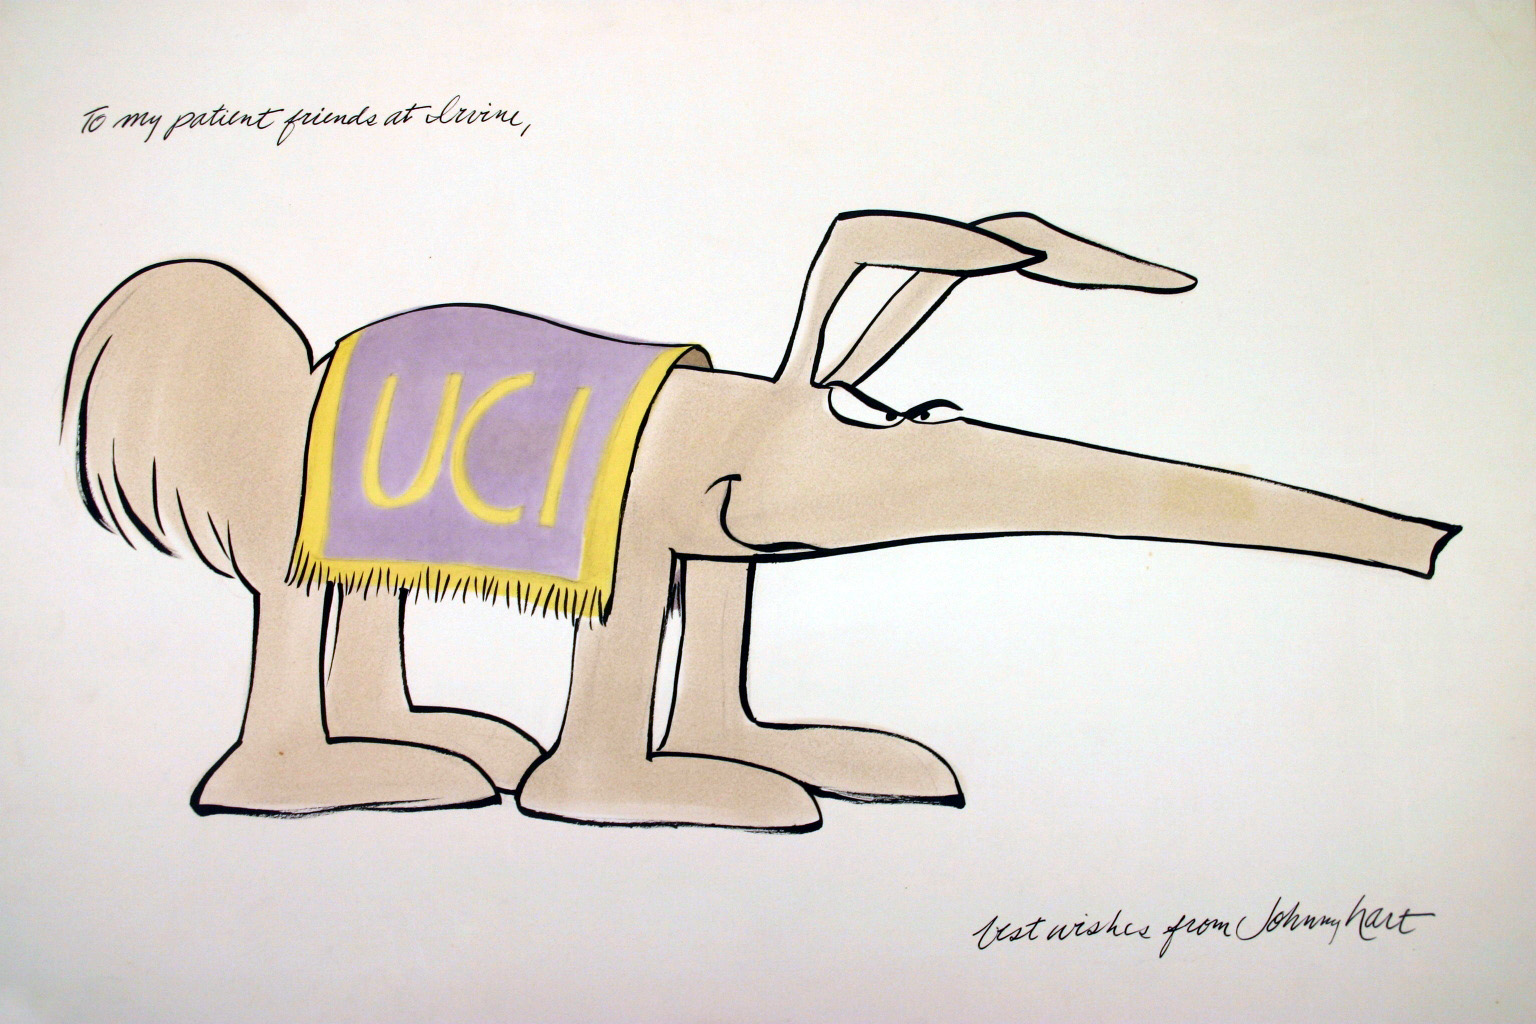 To my patient friends at Irvine,
UCI
best wishes from Johnny hart